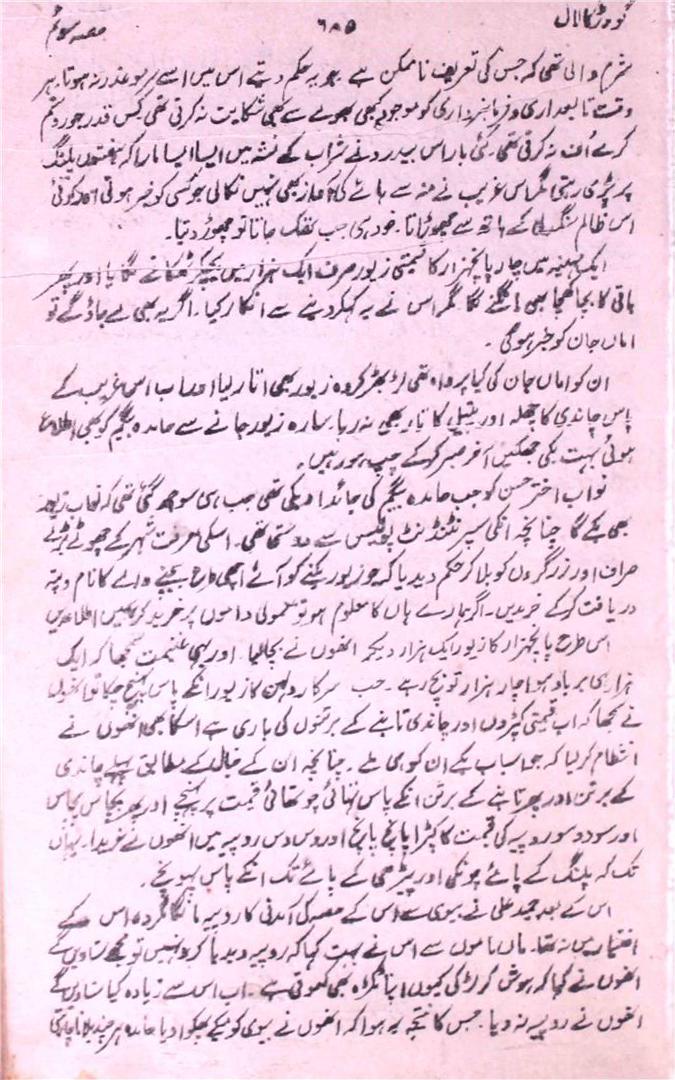 گودڑ کا لال ۶۸۵ حصہ سوئم
شرم والی تھی کہ جس کی تعریف ناممکن ہے جو یہ حکم دیتے اس میں اسے سرمو عذر نہ ہوتا۔ ہر
وقت تابعداری و فرمانبرداری کو موجود کبھی بھولے سے بھی شکایت نہ کرتی تھی کیس قدر جور و ستم
کرے اُف نہ کرتی تھی۔ کئی بار اس بیدرد نے شراب کے نشہ میں ایسا ایسا مارا کہ ہفتوں پلنگ
پر پڑی رہتی مگر اس غریب نے منہ سے ہائے کی آواز بھی نہیں نکالی جو کسی کو خبر ہوتی اور کوئی
اس ظالم سنگدل کے ہاتھ سے چھوڑاتا۔ خود ہی جب تھک جاتا تو چھوڑ دیتا۔
ایک مہینہ میں چار پانچہزار کا قیمتی زیور صرف ایک ہزار میں بیچکر ٹھکانے لگایا اور پھر
باقی کا بچا کھچا بھی مانگنے لگا مگر اس نے یہ کہکر دینے سے انکار کیا۔ اگر یہ بھی لے جاؤ گے تو
اماں جان کو خبر ہوگی۔
ان کو اماں جان کی کیا پرواہ تھی لڑ بھڑ کر وہ زیور بھی اتار لیا اور اب اس غریب کے
پاس چاندی کا چھلہ اور پیتل کا تار بھی نہ رہا۔ سارہ زیور جانے سے حامدہ بیگم کو بھی اطلاع
ہوئی بہت بکی جھکیں آخر صبر کر کے چپ ہو رہیں۔
نواب اختر حسن کو جب حامدہ بیگم کی جائداد بکی تھی جب ہی سوجھ گئی تھی کہ اب زیور
بھی بکے گا چنانچہ انکی سپرنٹنڈنٹ پولیس سے دوستی تھی۔ اسکی معرفت شہر کے چھوٹے بڑے
صراف اور زرگروں کو بلا کر حکم دیدیا کہ جو زیور بکنے کو آئے اچھی طرح بیچنے والے کا نام و پتہ
دریافت کر کے خریدیں۔ اگر ہمارے ہاں کا معلوم ہو تو معمولی داموں پر خرید کر ہمیں اطلاع دیں
اس طرح پانچہزار کا زیور ایک ہزار دیکر انھوں نے بچا لیا۔ اور یہی غنیمت سمجھا کہ ایک
ہزار ہی برباد ہوا چار ہزار تو بچ رہے۔ جب سرکار دلہن کا زیور انکے پاس پہنچ چکا تو انھوں
نے سمجھا کہ اب قیمتی کپڑوں اور چاندی تانبے کے برتنوں کی باری ہے اسکا بھی انھوں نے
انتظام کر لیا کہ جو اسباب بکے ان کو ہی ملے۔ چنانچہ ان کے خیال کے مطابق پہلے چاندی
کے برتن اور پھر تانبے کے برتن انکے پاس تہائی چوتھائی قیمت پر پہنچے اور پھر پچاس پچاس
اور سو دو سو روپیہ کی قیمت کا کپڑا پانچ پانچ اور دس دس روپیہ میں انھوں نے خریدا۔ یہاں
تک کہ پلنگ کے پائے چوکی اور پیڑھی کے پائے تک انکے پاس پہونچے۔
اس کے بعد حمید علی نے بیوی سے اس کے حصہ کی آمدنی کا روپیہ مانگا مگر وہ اس کے
اختیار میں نہ تھا۔ ماں ماموں سے اس نے بہت کہا کہ روپیہ دیدیا کرو نہیں تو مجھے ستاویں گے
انھوں نے کہا کہ ہوش کر لڑکی کیوں اپنا ٹکڑا بھی کھوتی ہے۔ اب اس سے زیادہ کیا ستاویں گے
انھوں نے روپیہ نہ دیا۔ جس کا نتیجہ یہ ہوا کہ انھوں نے بیوی کو میکے پھکوا دیا حامدہ ہر چند بلانا چاہتی